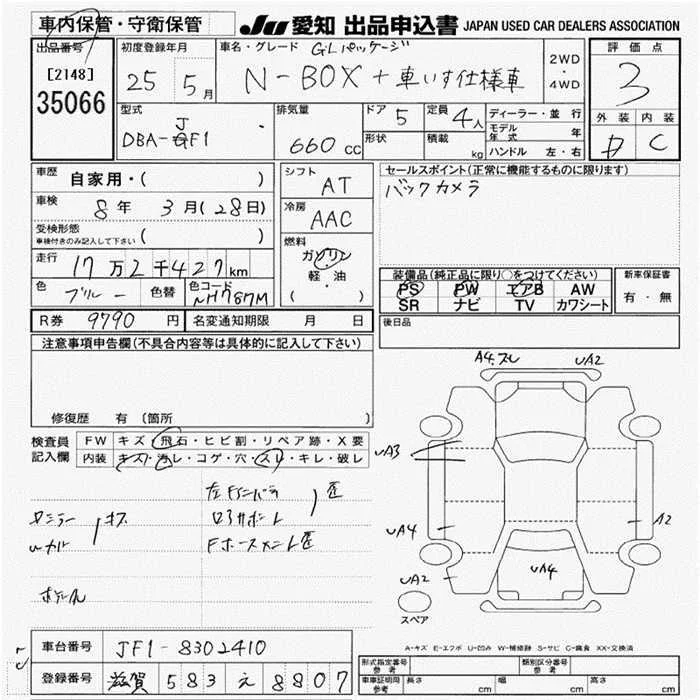 車内保管・守衛保管
JU 愛知 出品申込書 JAPAN USED CAR DEALERS ASSOCIATION
出品番号
[2148]
35066
初度登録年月
25 5月
車名・グレード GLパッケージ
N-BOX+車いす仕様車
2WD
・
4WD
評価点
3
外装 内装
D C
型式
J
DBA-GF1
排気量
660 cc
ドア 5
形状
定員 4人
積載 kg
ディーラー・並行
モデル年式 年
ハンドル 左・右
車歴 自家用・( )
車検 8年 3月(28日)
受検形態
車検付きのみ記入して下さい ( )
走行 17万2千427km
色 ブルー 色替 色コード NH787M
シフト AT
冷房 AAC
燃料
ガソリン
軽・油
( )
セールスポイント(正常に機能するものに限ります)
バックカメラ
装備品(純正品に限り○をつけてください)
PS PW エアB AW
SR ナビ TV カワシート
新車保証書
有・無
R券 9790円 名変通知期限 月 日
後日品
注意事項申告欄(不具合内容等は具体的に記入して下さい)
修復歴 有 (箇所
検査員記入欄
FW キズ・飛石・ヒビ割・リペア跡・X要
内装 キズ・汚レ・コゲ・穴・スレ・キレ・破レ
左Fインパネ
ロアサポート 歪
Fホースメント歪
キズ
A4.スレ UA2
UA3
UA4
A2
UA4
UA2
スペア
A-キズ E-エクボ U-凹み W-補修跡 S-サビ C-腐食 XX-交換済
車台番号 JF1-8302410
登録番号 滋賀 583 え 8807
形式指定番号 参考
類別区分番号 参考
車車証明用 参考 長さ cm 幅 cm 高さ cm